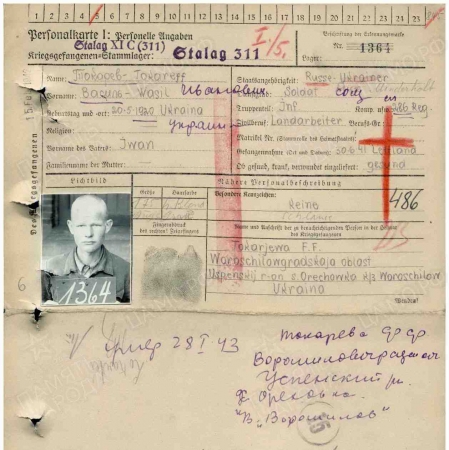 1 2 3 4 5 6 7 8 9 10 11 12 13 14 15 16 17 18 19 20 21 22 23 24 25
Personalkarte I: Personelle Angaben
Stalag XI C (311)
Kriegsgefangenen-Stammlager: Stalag 311
I./5.
Beschriftung der Erkennungsmarke
Nr. 1364
Lager:
Des Kriegsgefangenen
Name: Токарев - Tokareff
Vorname: Wasil Иванович
Geburtstag und -ort: Ukraina
украин
Religion
Vorname des Vaters: Iwan
Familienname der Mutter:
Staatsangehörigkeit: Russe-Ukrainer
Dienstgrad: Soldat
Truppenteil: Inf. Komp. usw.: Reg.
Zivilberuf: Landarbeiter Berufs-Gr.:
Matrikel Nr.
Gefangennahme (Ort und Datum): 30.6.41 Lettland
Ob gesund, krank, verwundet eingeliefert: gesund
Lichtbild
Nähere Personalbeschreibung
Größe
Haarfarbe
Besondere Kennzeichen:
Keine
486
Fingerabdruck
des rechten Zeigefingers
Name und Anschrift der zu benachrichtigenden Person in der Heimat
des Kriegsgefangenen
Tokarjewa F.F.
Woroschilowgradskaja oblast
Uspenskij r-on s. Orechowka Woroschilow
Ukraina
Wenden!
1364
6
умер 28 I 43
Токарева Ф Ф
Ворошиловградская
Успенский р.
Ореховка
"Ворошилов"